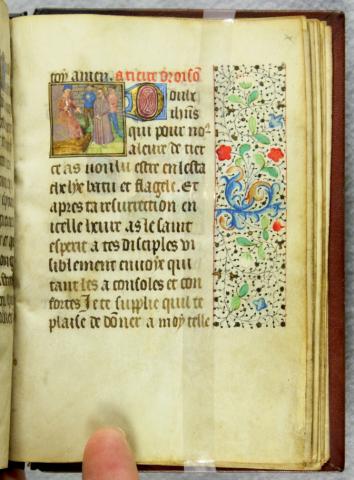 toy amen. a tierce oroiso
Doulx
ihus
qui pour noꝰ
a leure de tier
ce as voulu estre en lesta
che lye batu et flagele. Et
apres ta resurrection en
icelle heure as le saint
esperit a tes disciples vi
siblement envoye qui
tant les a consoles et con
fortes Je te supplie quil te
plaise de dōner a moy telle